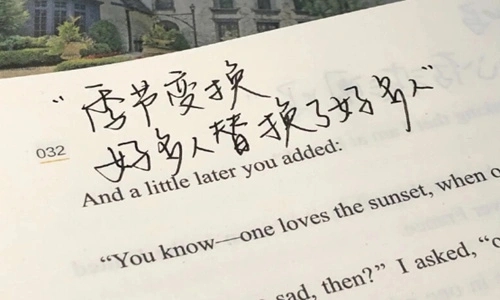 “季节变换
032
好多人替换了好多人”
And a little later you added:
“You know—one loves the sunset, when o
sad, then?” I asked, “o